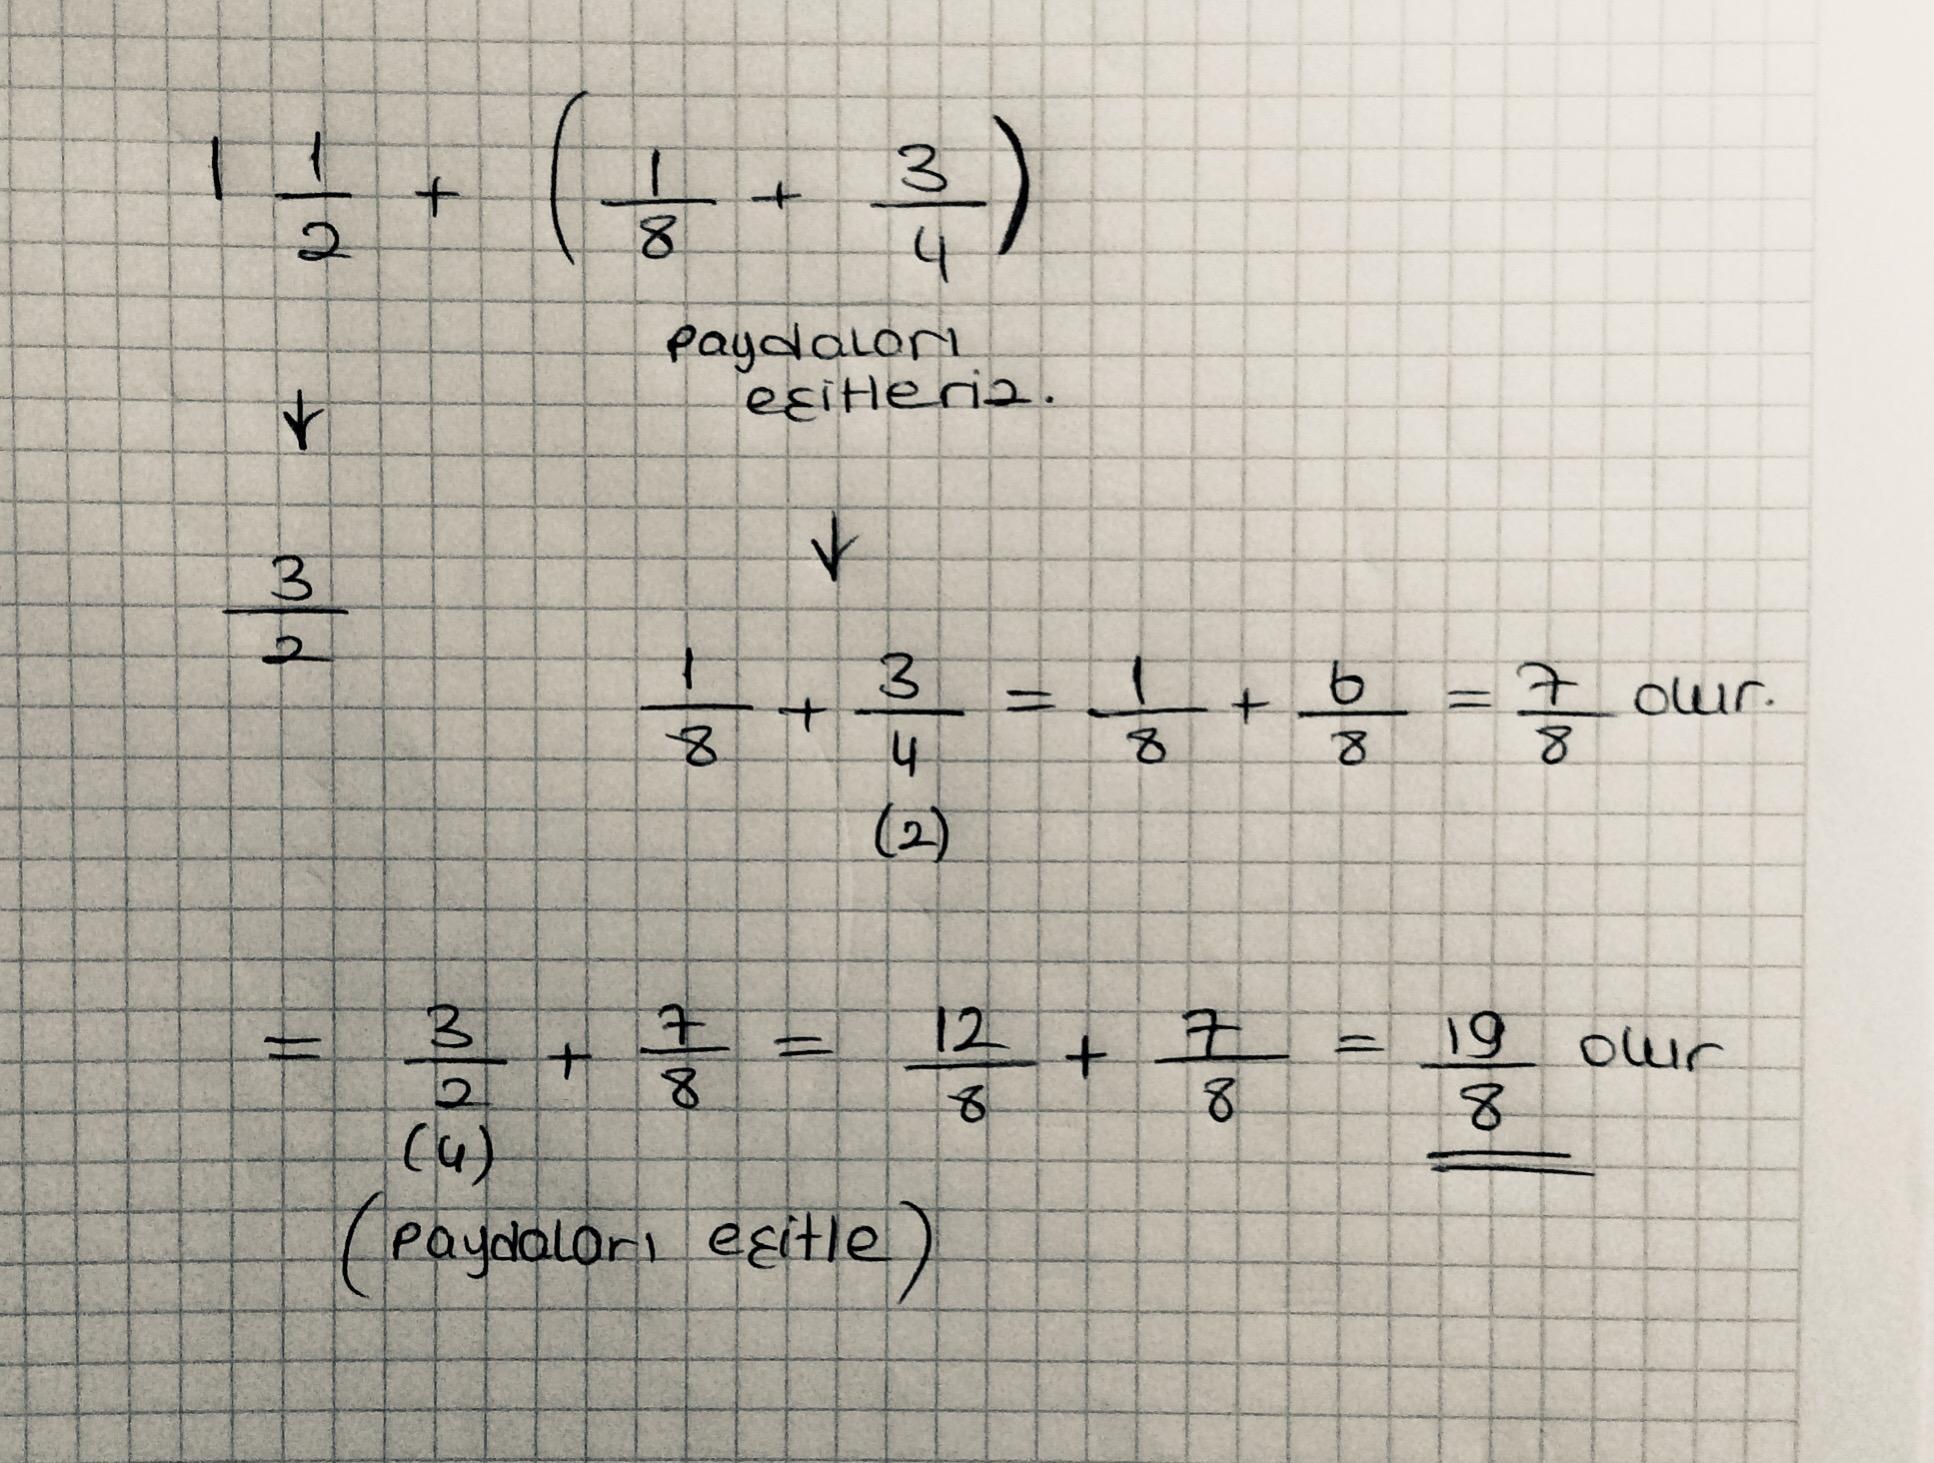 1 1/2 + (1/8 + 3/4)
paydaları
eşitleriz.
↓
3/2
↓
1/8 + 3/4 = 1/8 + 6/8 = 7/8 olur.
(2)
= 3/2 + 7/8 = 12/8 + 7/8 = 19/8 olur
(4)
(paydaları eşitle)